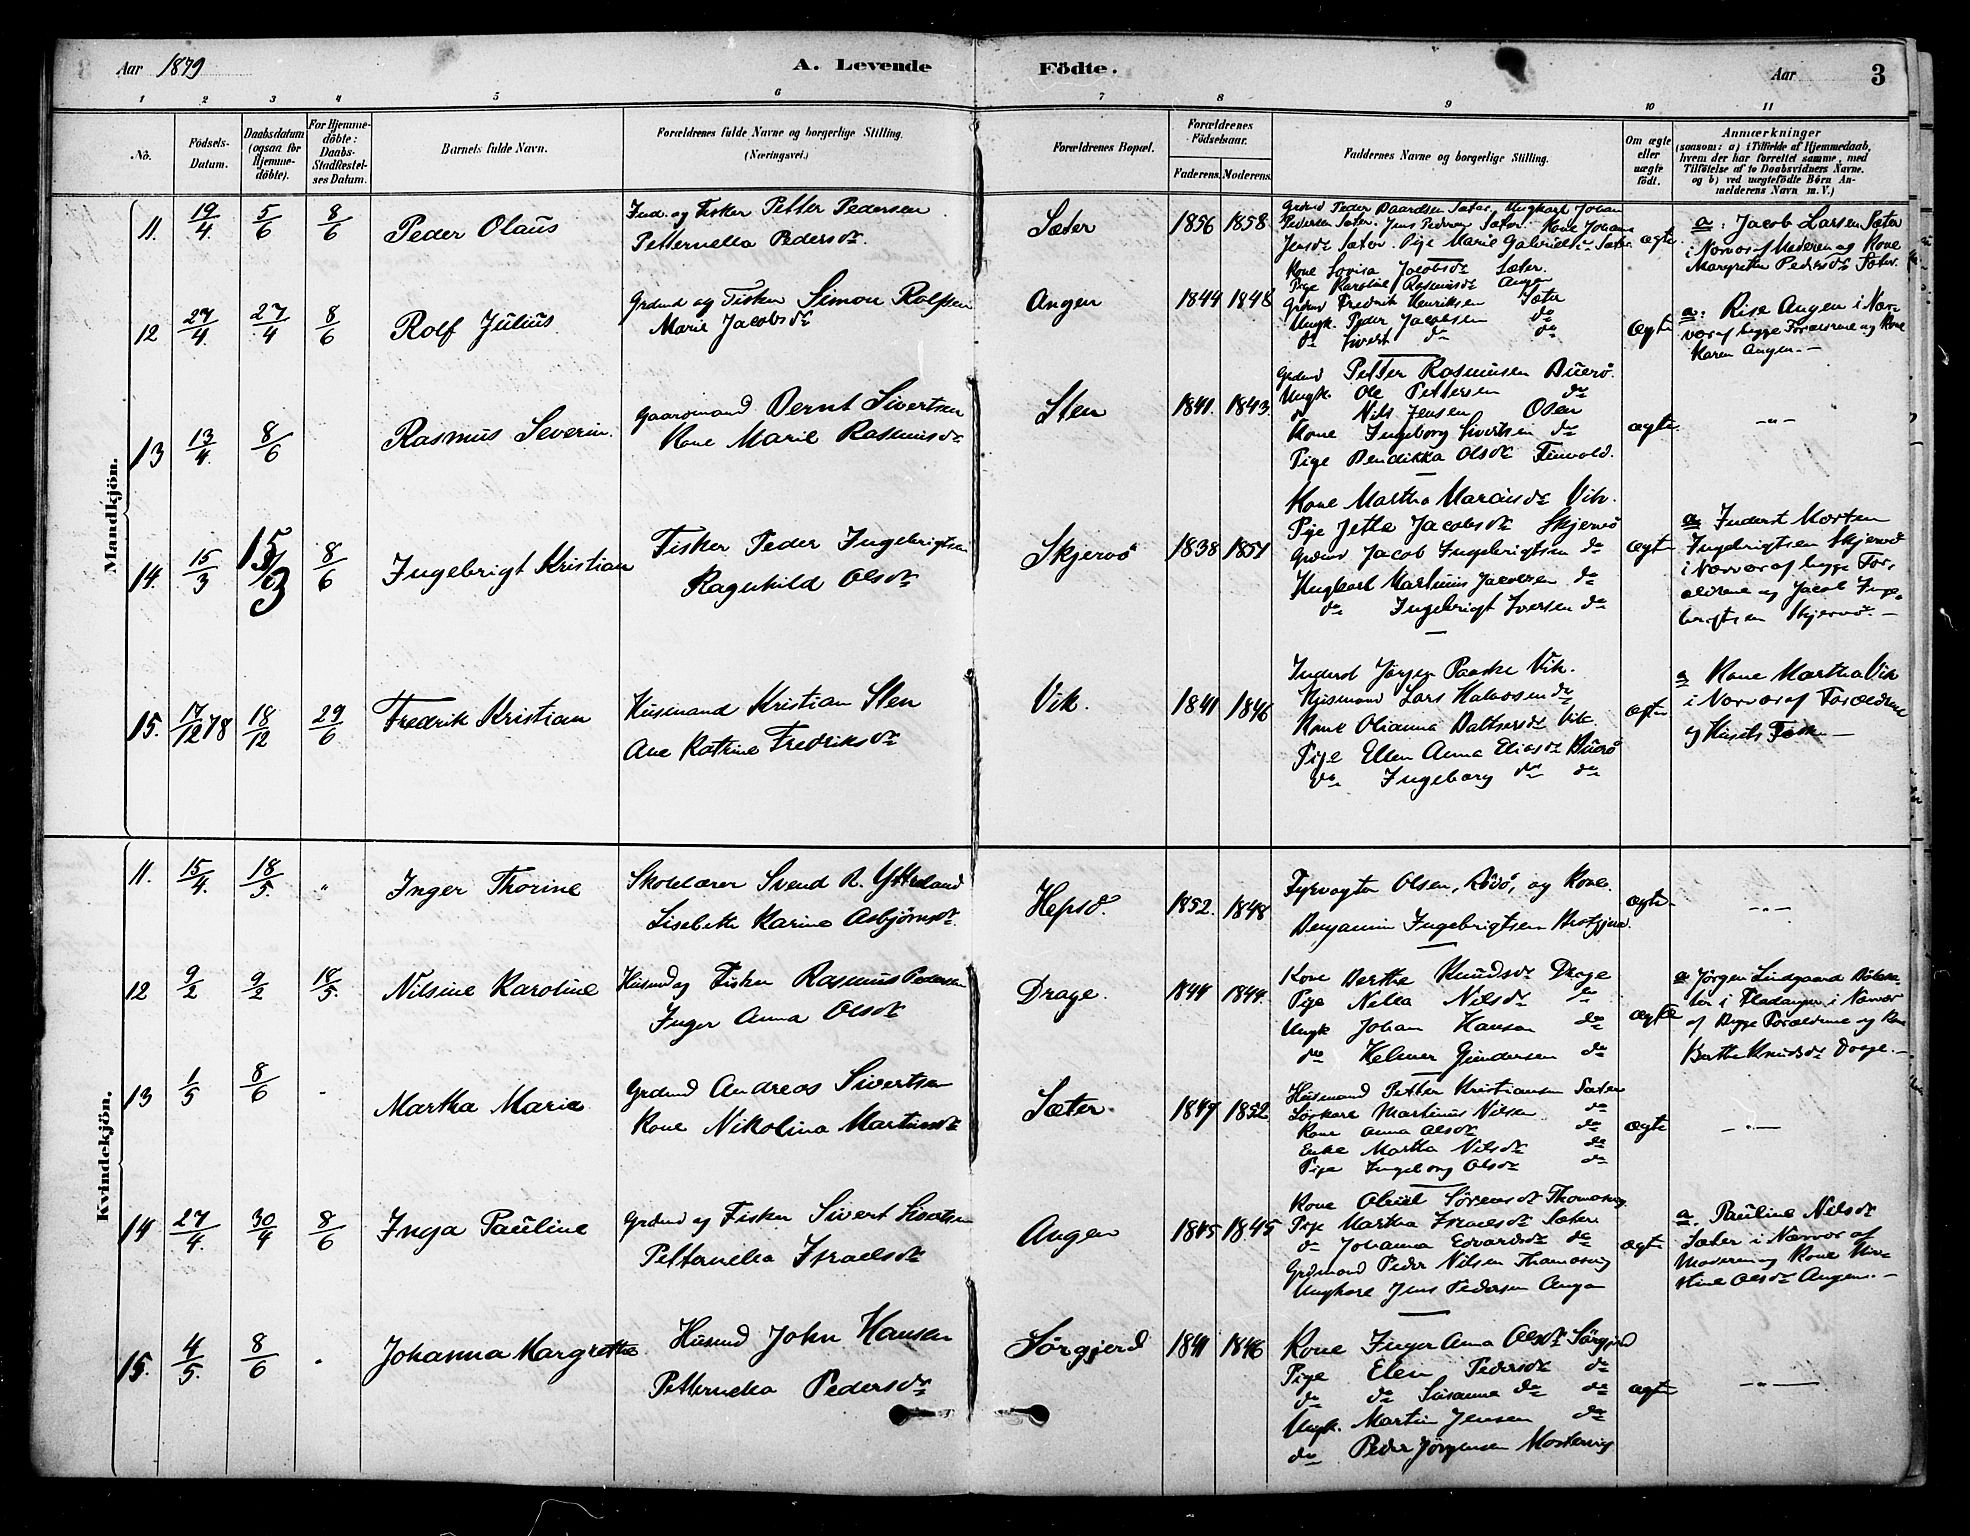 Aar 1879
A. Levende Födte.
Aar
3
1 2 3 4 5 6 7 8 9 10 11
No.
Födsels-Datum.
Daabsdatum (ogsaa for Hjemmedöbte).
For Hjemmedöbte: Daabs-Stadfæstelses Datum.
Barnets fulde Navn.
Forældrenes fulde Navne og borgerlige Stilling. (Næringsvei.)
Forældrenes Bopæl.
Forældrenes Födselsaar.
Faderens. Moderens.
Faddernes Navne og borgerlige Stilling.
Om ægte eller uægte födt.
Anmærkninger
(saasom: a) i Tilfælde af Hjemmedaab, hvem der har forrettet samme, med Tilföielse af to Daabsvidners Navne. og b) ved uægtefödte Börn Anmelderens Navn m. V.)
Mandkjön.
11. 19/4 5/6 8/6 Peder Olaus
Ind. og Fisker Petter Pedersen
Petternella Pedersdr
Sæter 1856 1858
Grdmd Peder Baardsen Sæter. Ungkarl Johan
Pedersen Sæter. Jens Pedersen Sæter. Kone Johanna
Jensdr Sæter. Pige Marie Gabrielsdr Sæter.
Kone Lovisa Jacobsdr Sæter.
ægte
a: Jacob Larsen Sæter
i Nærvær af Moderen og Kone
Margrethe Pedersdr Sæter.
12 27/4 27/4 8/6 Rolf Julius
Grdmd og Fisker Simon Rolfsen
Marie Jacobsdr
Angen 1844 1848
Pige Karoline Rasmusdr Angen
Grdmd Fredrik Henriksen Sæter
Ungk. Peder Jacobsen do
do Sivert do do
ægte
a: Rise Angen i Nær-
vær af begge Forældrene og Kone
Karen Angen.-
13 13/4 8/6 Rasmus Severin.
Gaardmand Bernt Sivertsen
Kone Marie Rasmusdr
Sten 1841. 1843.
Grdmd Petter Rasmusen Buerö.
Ungk. Ole Pettersen do
do Nils Jensen Osen
Kone Ingeborg Sivertsen do
Pige Bendikka Olsdr Finvold.
ægte. - " -
14. 15/3 15/3 8/6 Ingebrigt Kristian
Fisker Peder Ingebrigtsen
Ragnhild Olsdr
Skjervö 1838 1851
Kone Martha Mariusdr Vik.
Pige Jette Jacobsdr Skjervö
Grdmd Jacob Ingebrigtsen do
Ungkarl Martinus Jacobsen do
do Ingebrigt Iversen do
ægte
a: Inderst Morten
Ingebrigtsen Skjervö
i Nærvær af begge For-
ældrene og Jacob Inge-
brigtsen Skjervö.-
15. 17/12 78 18/12 29/6 Fredrik Kristian
Husmand Kristian Sten
Ane Katrine Fredriksdr
Vik. 1841 1846
Inderst Jørgen Paaske Vik.
Husmand Lars Halvosen do
Kone Olianna Baltsersdr Vik.
Pige Ellen Anna Eliasdr Buerö
do Ingeborg do do
ægte
a Kone Martha Vik
i Nærvær af Forældrene
og Husets Folk -
Kvindekjön.
11. 15/4. 18/5 " Inger Thorine
Skolelærer Svend R. Ytreland
Lisebeth Karine Asbjörnsdr
Hepsö. 1852. 1848
Fyrvogter Olsen, , og Kone.
Benjamin Ingebrigtsen
ægte - " -
12 9/2 9/2 18/5. Nilsine Karoline
Husmd og Fisker Rasmus Pedersen
Inger Anna Olsdr
Drage. 1844 1844.
Kone Berthe Knudsdr Drage
Pige Nilla Nilsdr do
Ungk Johan Hansen do
do Helmer Gundersen do
ægte
a Jørgen Lindgaard
i Fladanger i Nærvær
af Begge Forældrene og Kone
Berthe Knudsdr Drage.-
13 1/5 8/6 - Martha Maria
Grdmd Andreas Sivertsen
Kone Nikolina Martinsdr
Sæter. 1847 1852
Husmand Petter Kristiansen Sæter
Martinus Nilsen do
Kone Anna Olsdr do
Enke Martha Nilsdr do
Pige Ingeborg Olsdr do
ægte - " -
14 27/4. 30/4 8/6 Inga Pauline
Grdmd og Fisker Sivert Sivertsen
Petternella Israelsdr
Angen 1845 1845
Kone Sörensdr Thomasvig
Pige Martha Israelsdr Sæter
do Johanna Edvardsdr do
Grdmand Peder Nilsen Thomasvig
Ungkarl Jens Pedersen Angen
ægte
a. Pauline Nilsdr
Sæter i Nærvær af
Moderen og Kone
Olsdr Angen.-
15. 4/5. 8/6 . Johanna Margrethe
Husmd John Hansen
Petternella Pedersdr
Sørgjerd 1841 1846
Kone Inger Anna Olsdr Sørgjerd
Pige Elen Pedersdr do
do do Susanne do do
Ungk. Martin Jensen do
do Peder Jørgensen Mostervig
ægte - " -